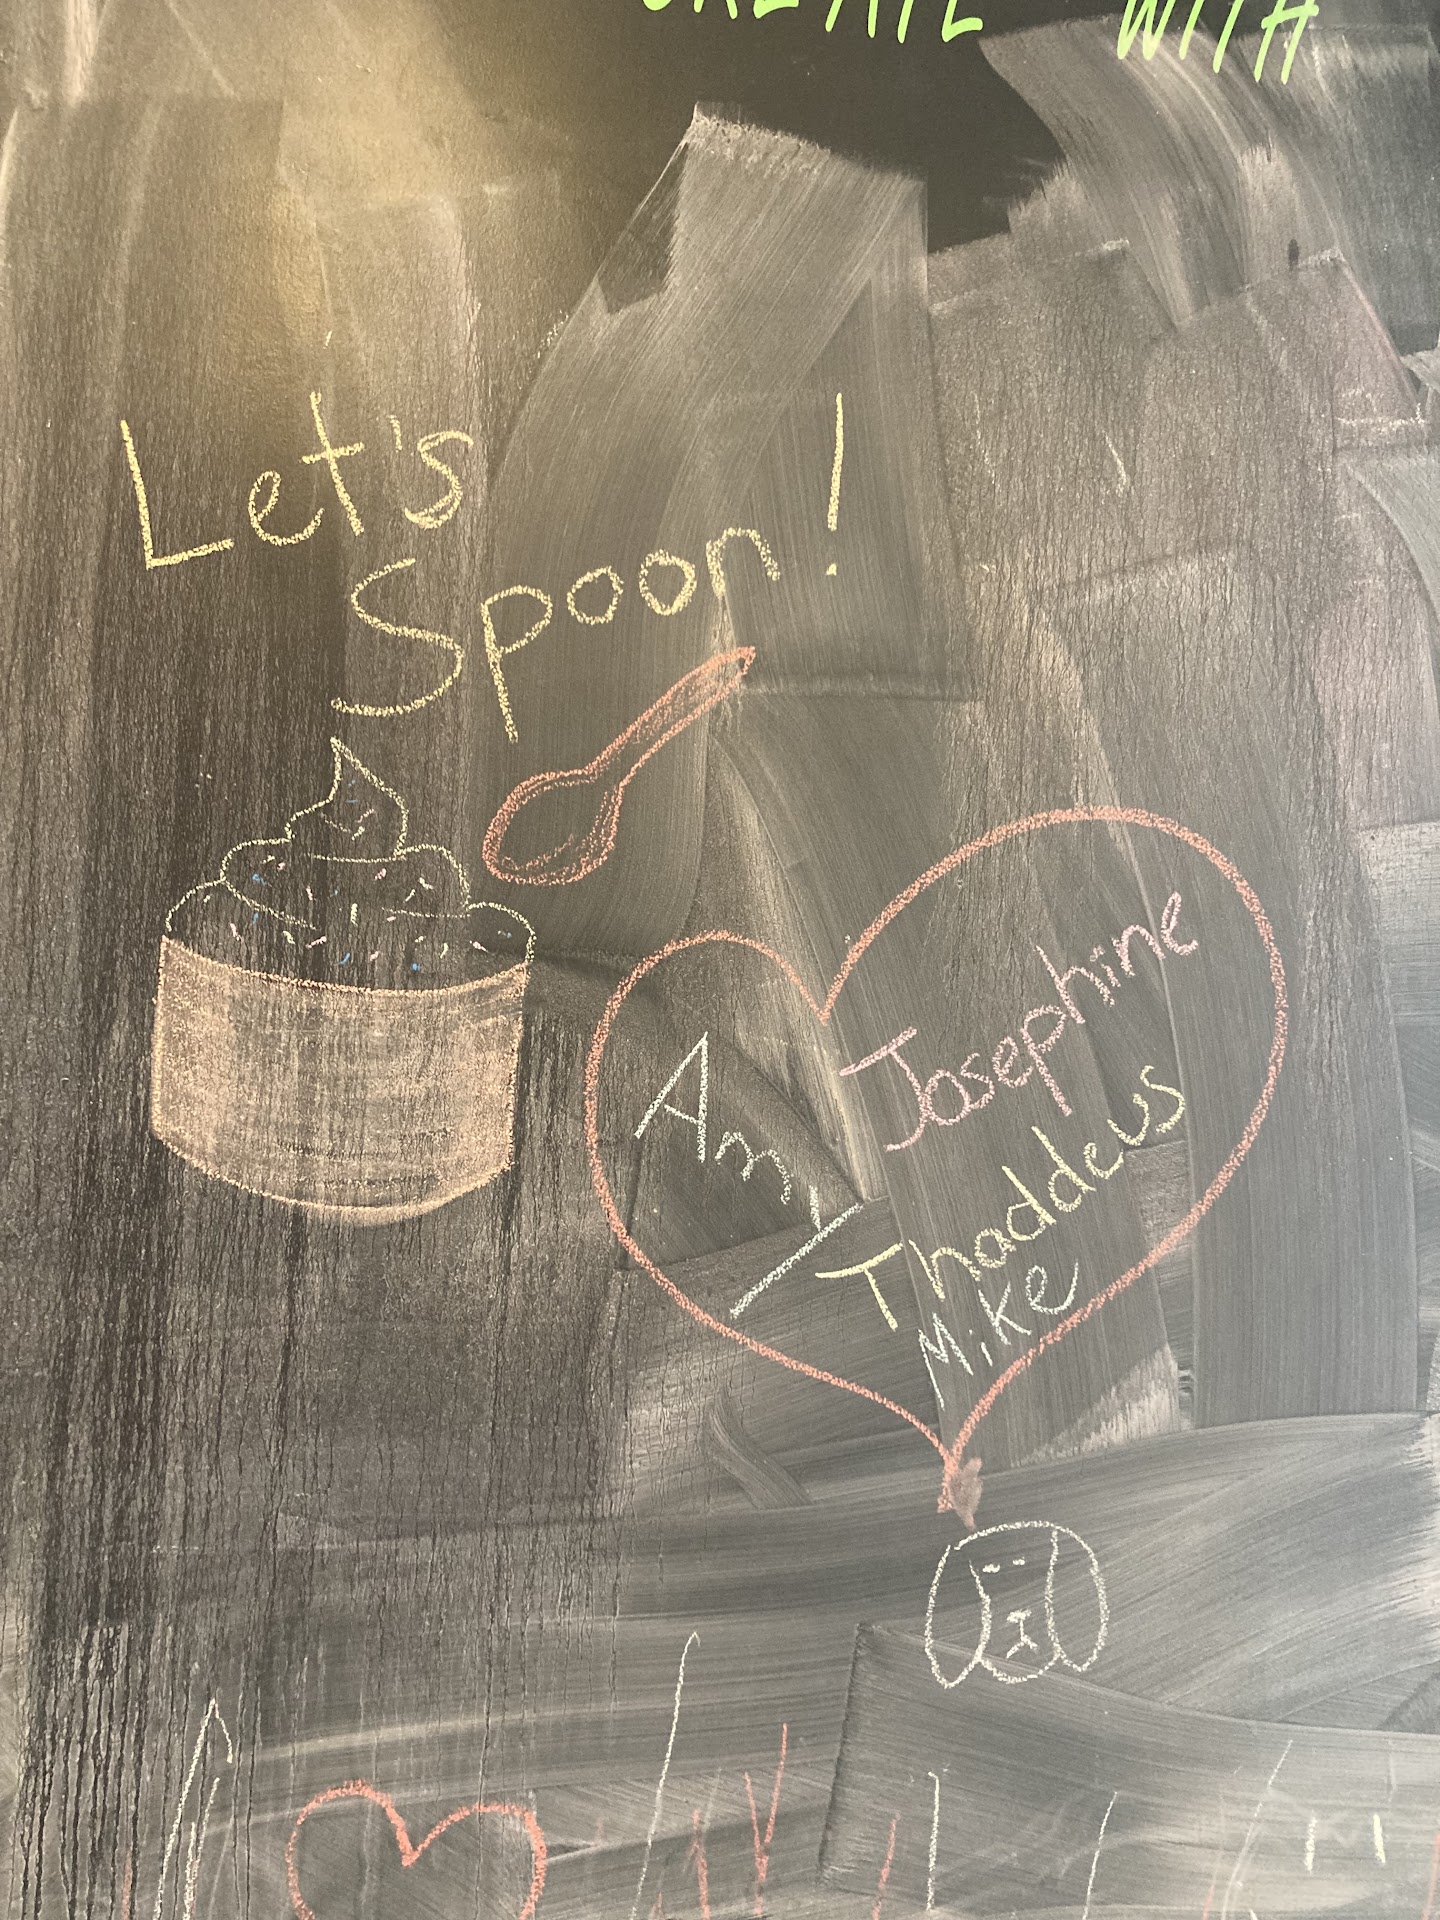 CREATE WITH
Let's
Spoon!
Amy
Josephine
Thaddeus
Mike